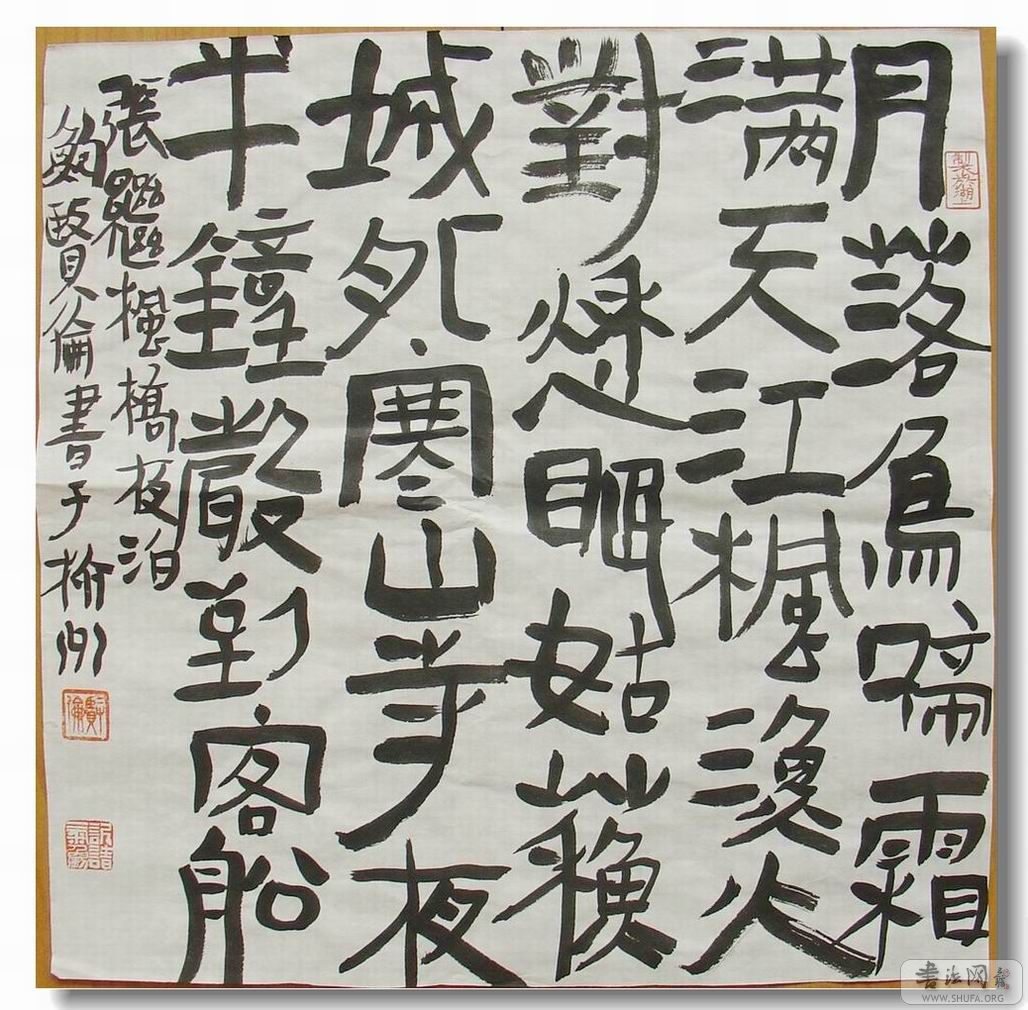 月落烏啼霜
满天江楓漁火
對愁眠姑蘇
城外寒山寺夜
半鐘聲到客船
張繼楓橋夜泊
鮑賢倫書于榆州
书法网
WWW.SHUFA.ORG